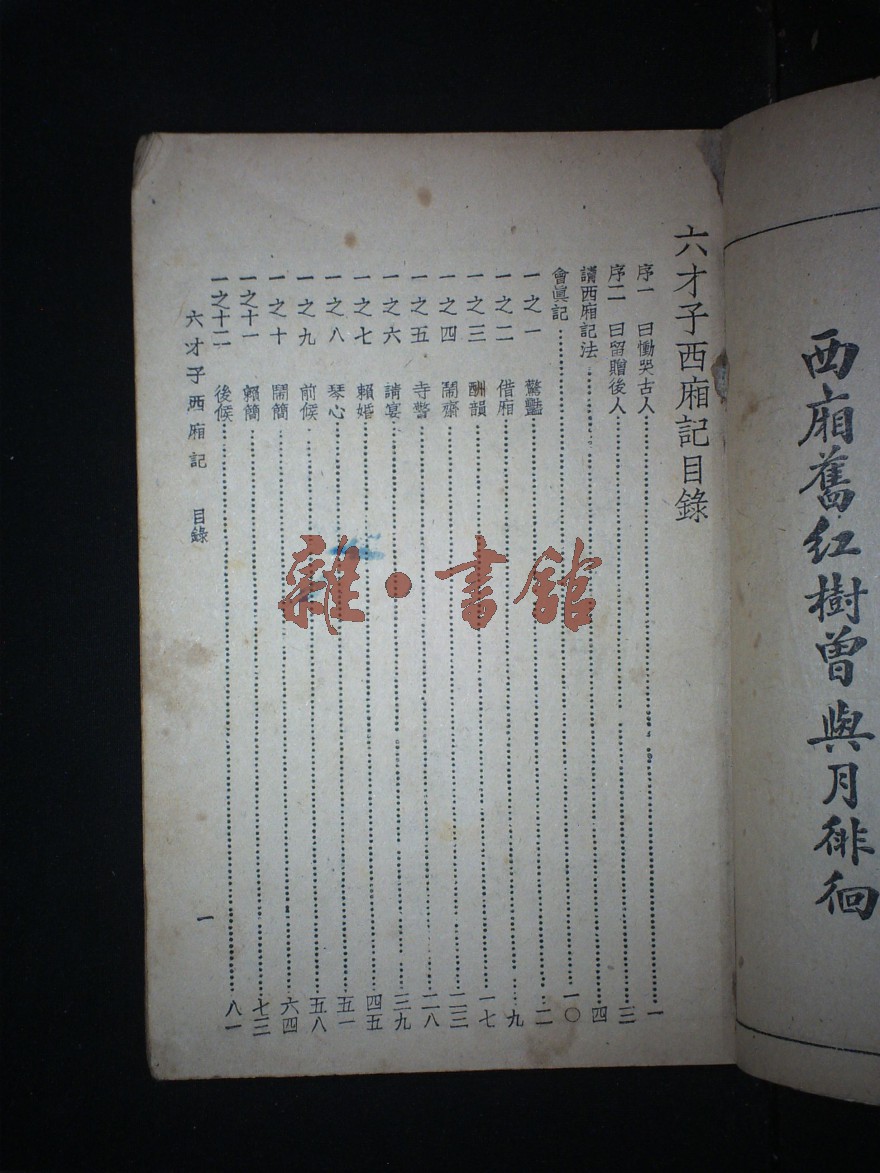 西廂舊紅樹曾與月徘徊
六才子西廂記目錄
序一 曰慟哭古人……一
序二 曰留贈後人……三
讀西廂記法……四
會眞記……一〇
一之一 驚豔……二
一之二 借廂……九
一之三 酬韻……一七
一之四 鬧齋……二三
一之五 寺警……二八
一之六 請宴……三九
一之七 賴婚……四五
一之八 琴心……五一
一之九 前候……五八
一之十 鬧簡……六四
一之十一 賴簡……七三
一之十二 後候……八一
六才子西廂記 目錄 一
雜·書館